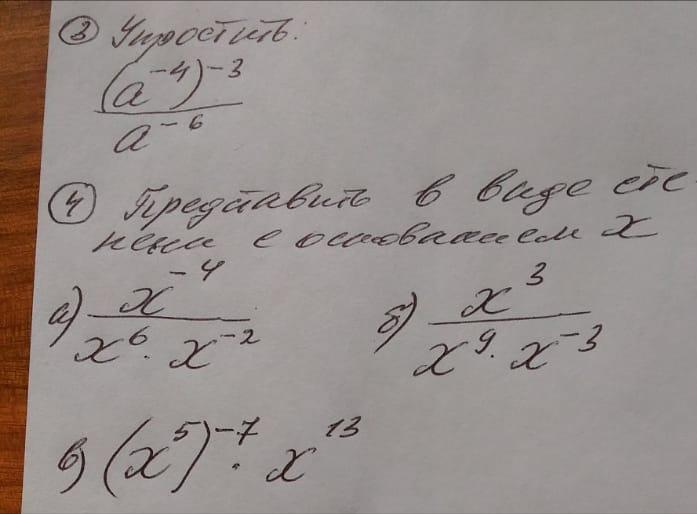 ③ Упростить:
(a⁻⁴)⁻³
a⁻⁶
④ Представить в виде сте-
пени с основанием x
а) x⁻⁴
x⁶ · x⁻²
б) x³
x⁹ · x⁻³
в) (x⁵)⁻⁷ · x¹³